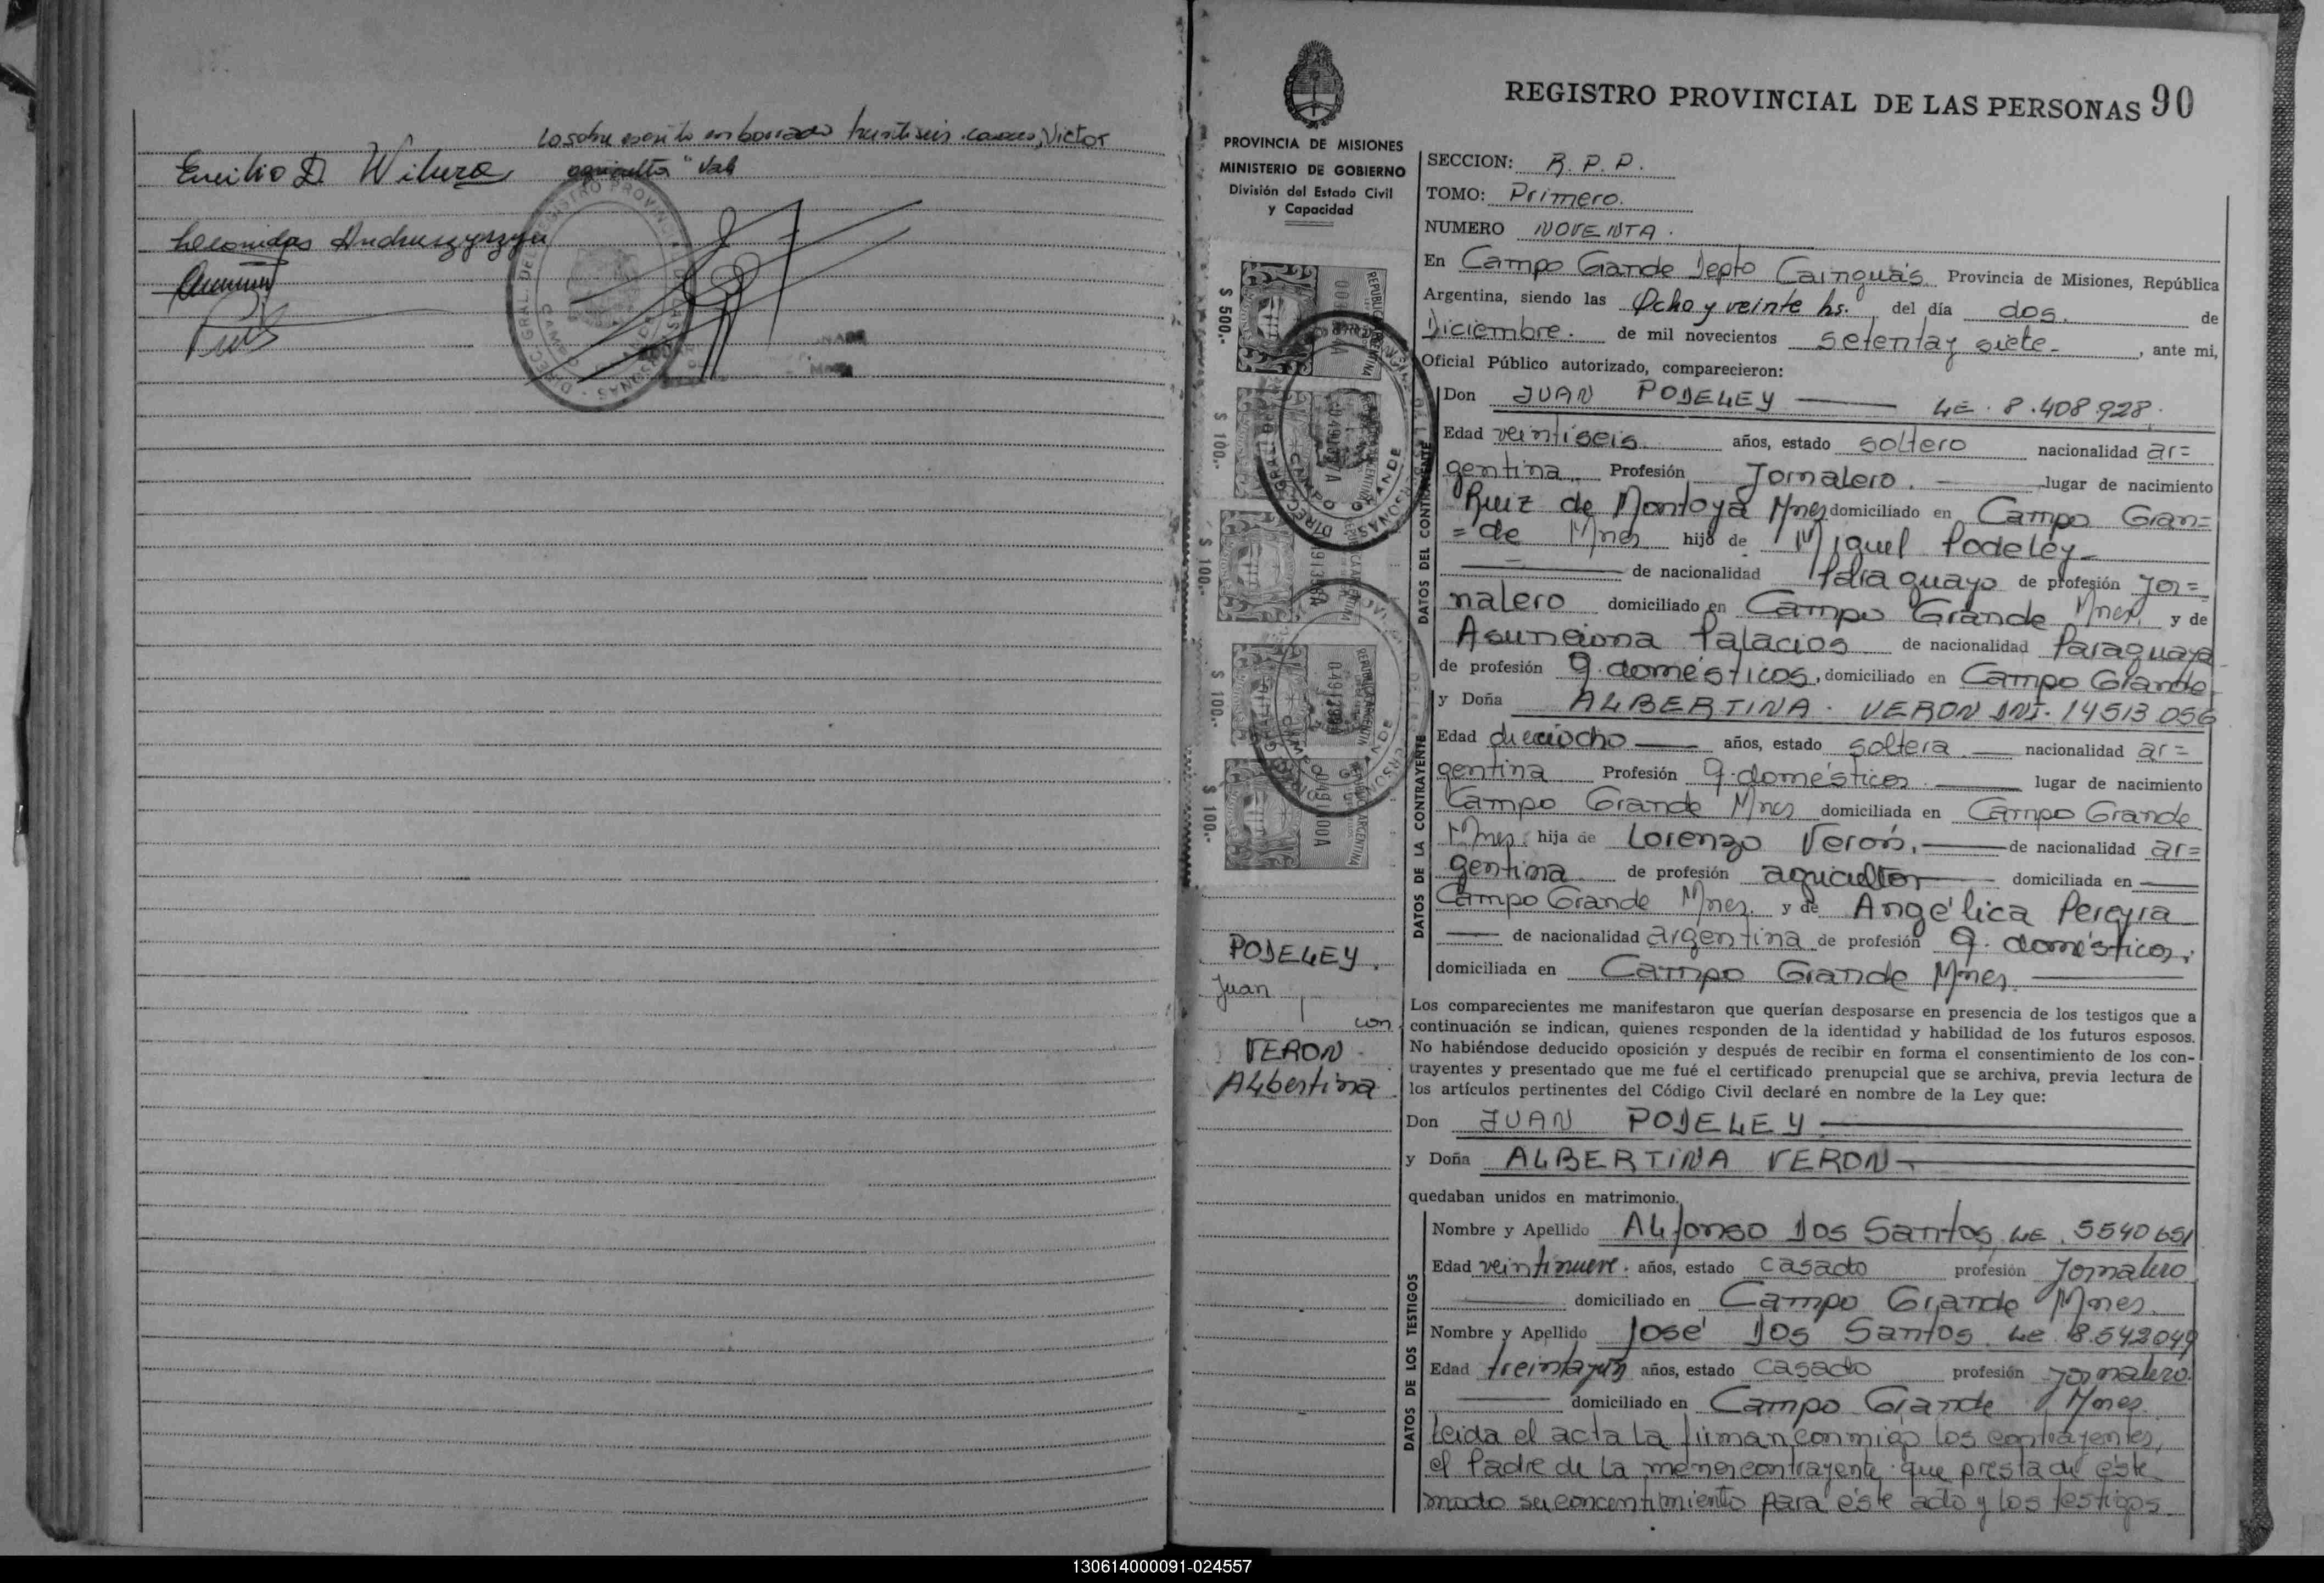 Lo sobre escrito en borrado treintiseis. casado, Victor
Emilio D. Wilure agricultor" Vale
Leonidas Andruszyszyn
DIREC. GRAL. DEL REGISTRO PROVINCIAL DE LAS PERSONAS
CAMPO GRANDE
REGISTRO PROVINCIAL DE LAS PERSONAS 90
PROVINCIA DE MISIONES
MINISTERIO DE GOBIERNO
División del Estado Civil
y Capacidad
SECCION: R. P. P.
TOMO: Primero.
NUMERO NOVENTA.
En Campo Grande Depto Cainguás Provincia de Misiones, República
Argentina, siendo las Ocho y veinte hs. del día dos. de
Diciembre. de mil novecientos setenta y siete- , ante mi,
Oficial Público autorizado, comparecieron:
DATOS DEL CONTRAYENTE
Don JUAN PODELEY LE. 8.408.928.
Edad veintiseis años, estado soltero nacionalidad ar=
gentina Profesión Jornalero. lugar de nacimiento
Ruiz de Montoya Mnes domiciliado en Campo Gran=
=de Mnes hijo de Miguel Podeley-
de nacionalidad Paraguayo de profesión Jor=
nalero domiciliado en Campo Grande Mnes y de
Asunciona Palacios de nacionalidad Paraguaya
de profesión q. domésticos, domiciliado en Campo Grande
DATOS DE LA CONTRAYENTE
y Doña ALBERTINA. VERON DNI. 14513056
Edad dieciocho años, estado soltera nacionalidad ar=
gentina Profesión q. domésticos. lugar de nacimiento
Campo Grande Mnes domiciliada en Campo Grande
Mnes. hija de Lorenzo Verón, de nacionalidad ar=
gentina. de profesión agricultor domiciliada en
Campo Grande Mnes. y de Angélica Pereyra
de nacionalidad argentina de profesión q. domésticos,
domiciliada en Campo Grande Mnes.
$ 500.-
$ 100.-
$ 100.-
$ 100.-
$ 100.-
REPUBLICA ARGENTINA
CAMPO GRANDE
PODELEY.
Juan
con
VERON
Albertina
Los comparecientes me manifestaron que querían desposarse en presencia de los testigos que a
continuación se indican, quienes responden de la identidad y habilidad de los futuros esposos.
No habiéndose deducido oposición y después de recibir en forma el consentimiento de los con-
trayentes y presentado que me fué el certificado prenupcial que se archiva, previa lectura de
los artículos pertinentes del Código Civil declaré en nombre de la Ley que:
Don JUAN PODELEY
y Doña ALBERTINA VERON
quedaban unidos en matrimonio.
DATOS DE LOS TESTIGOS
Nombre y Apellido Alfonso Dos Santos LE. 5540651
Edad veintinueve. años, estado casado profesión Jornalero
domiciliado en Campo Grande Mnes.
Nombre y Apellido José Dos Santos. LE 8.542049
Edad treintayún años, estado casado profesión Jornalero.
domiciliado en Campo Grande Mnes.
Leida el acta la firman conmigo los contrayentes,
el Padre de la menor contrayente que presta de éste
modo su concentimiento para éste acto y los testigos.
130614000091-024557